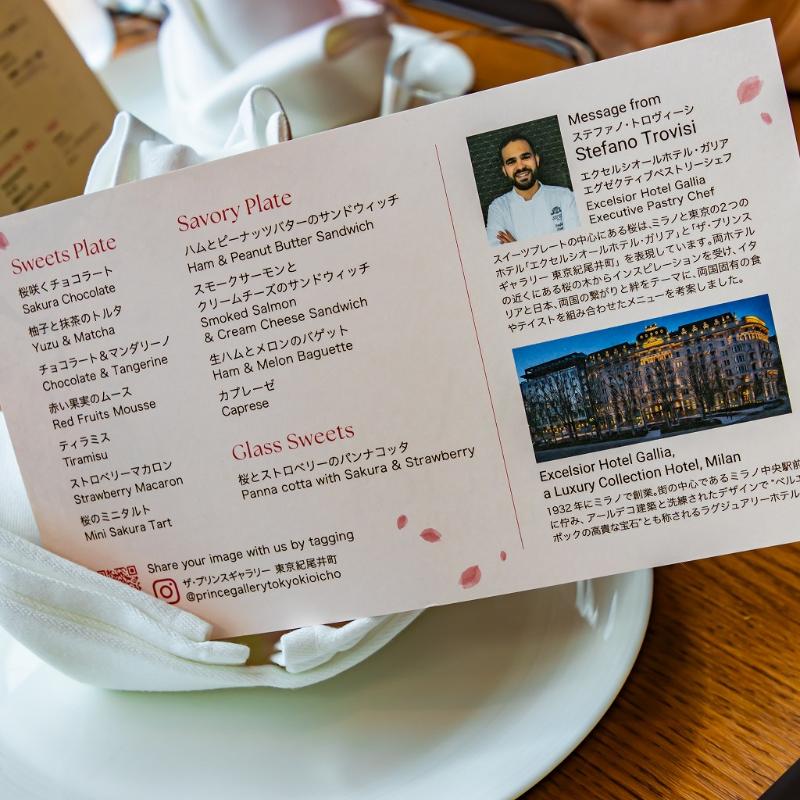 Sweets Plate
桜咲くチョコラート
Sakura Chocolate
柚子と抹茶のトルタ
Yuzu & Matcha
チョコラート&マンダリーノ
Chocolate & Tangerine
赤い果実のムース
Red Fruits Mousse
ティラミス
Tiramisu
ストロベリーマカロン
Strawberry Macaron
桜のミニタルト
Mini Sakura Tart
Savory Plate
ハムとピーナッツバターのサンドウィッチ
Ham & Peanut Butter Sandwich
スモークサーモンと
クリームチーズのサンドウィッチ
Smoked Salmon
& Cream Cheese Sandwich
生ハムとメロンのバゲット
Ham & Melon Baguette
カプレーゼ
Caprese
Glass Sweets
桜とストロベリーのパンナコッタ
Panna cotta with Sakura & Strawberry
Share your image with us by tagging
ザ・プリンスギャラリー 東京紀尾井町
@princegallerytokyokioicho
Message from
ステファノ・トロヴィーシ
Stefano Trovisi
エクセルシオールホテル・ガリア
エグゼクティブペストリーシェフ
Excelsior Hotel Gallia
Executive Pastry Chef
スイーツプレートの中心にある桜は、ミラノと東京の2つの
ホテル「エクセルシオールホテル・ガリア」と「ザ・プリンス
ギャラリー 東京紀尾井町」を表現しています。両ホテル
の近くにある桜の木からインスピレーションを受け、イタ
リアと日本、両国の繋がりと絆をテーマに、両国固有の食
やテイストを組み合わせたメニューを考案しました。
Excelsior Hotel Gallia,
a Luxury Collection Hotel, Milan
1932年にミラノで創業。街の中心であるミラノ中央駅前
に佇み、アールデコ建築と洗練されたデザインで"ベルエ
ポックの高貴な宝石"とも称されるラグジュアリーホテル